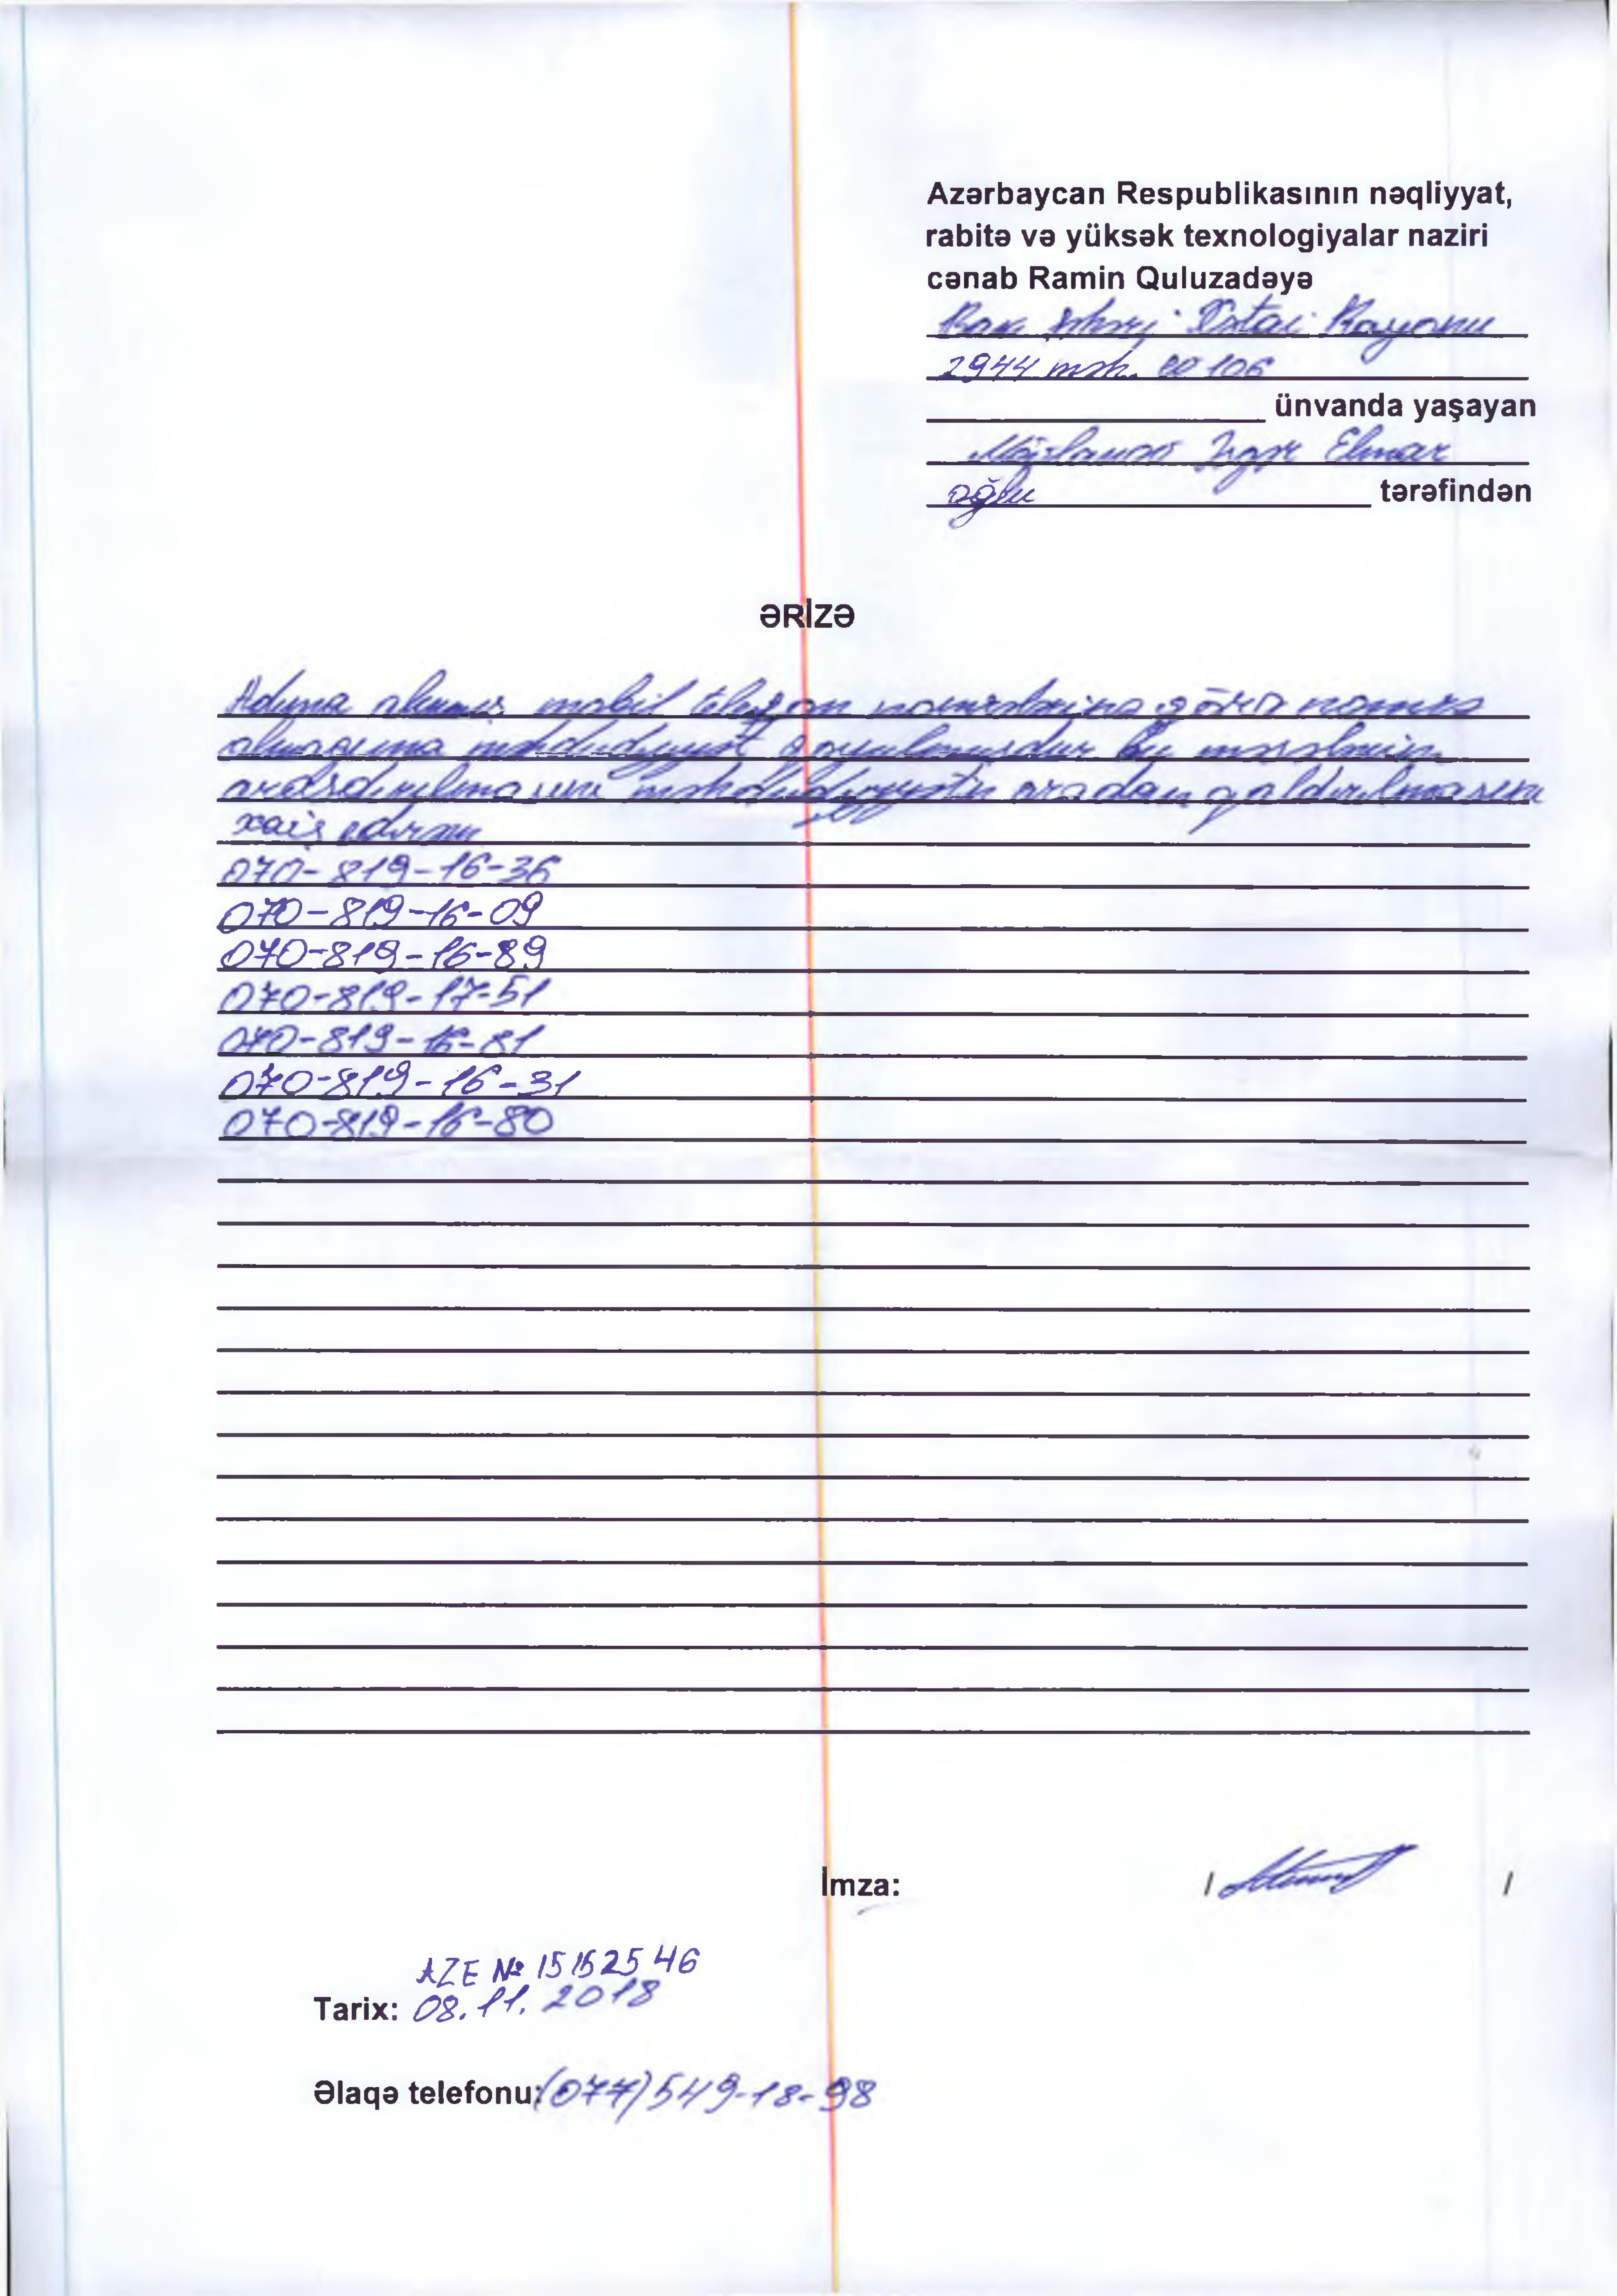 Azərbaycan Respublikasının nəqliyyat,
rabitə və yüksək texnologiyalar naziri
cənab Ramin Quluzadəyə
Xətai Rayonu
2944 məh. ev 106
ünvanda yaşayan
Elmar
oğlu tərəfindən
ƏRİZƏ
Adıma alınmış mobil telefon nömrələrinə görə nömrə
məhdudiyyət qoyulmuşdur bu məsələnin
araşdırılmasını məhdudiyyətin aradan qaldırılmasını
xaiş edirəm
070-819-16-36
070-819-16-09
070-819-16-89
070-819-17-51
070-819-16-81
070-819-16-31
070-819-16-80
İmza: / /
AZE № 15152546
Tarix: 08.11.2018
Əlaqə telefonu: (077) 549-18-98